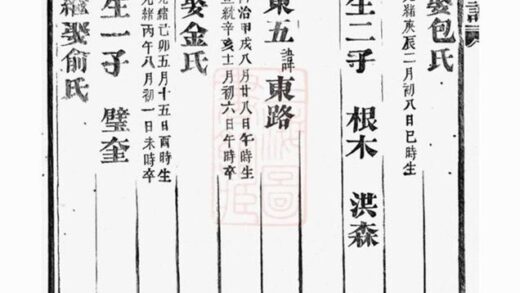 譜
娶包氏
光緒庚辰二月初八日巳時生
生二子 根木 洪森
東五 諱東路
同治甲戌八月廿八日午時生
宣統辛亥 月初六日午時卒
娶金氏
光緒己卯五月十五日酉時生
光緒丙午八月初一日未時卒
生一子 璧奎
繼娶俞氏